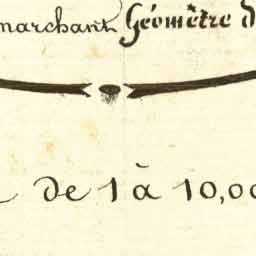 marchant Géomètre d
de 1 à 10,00